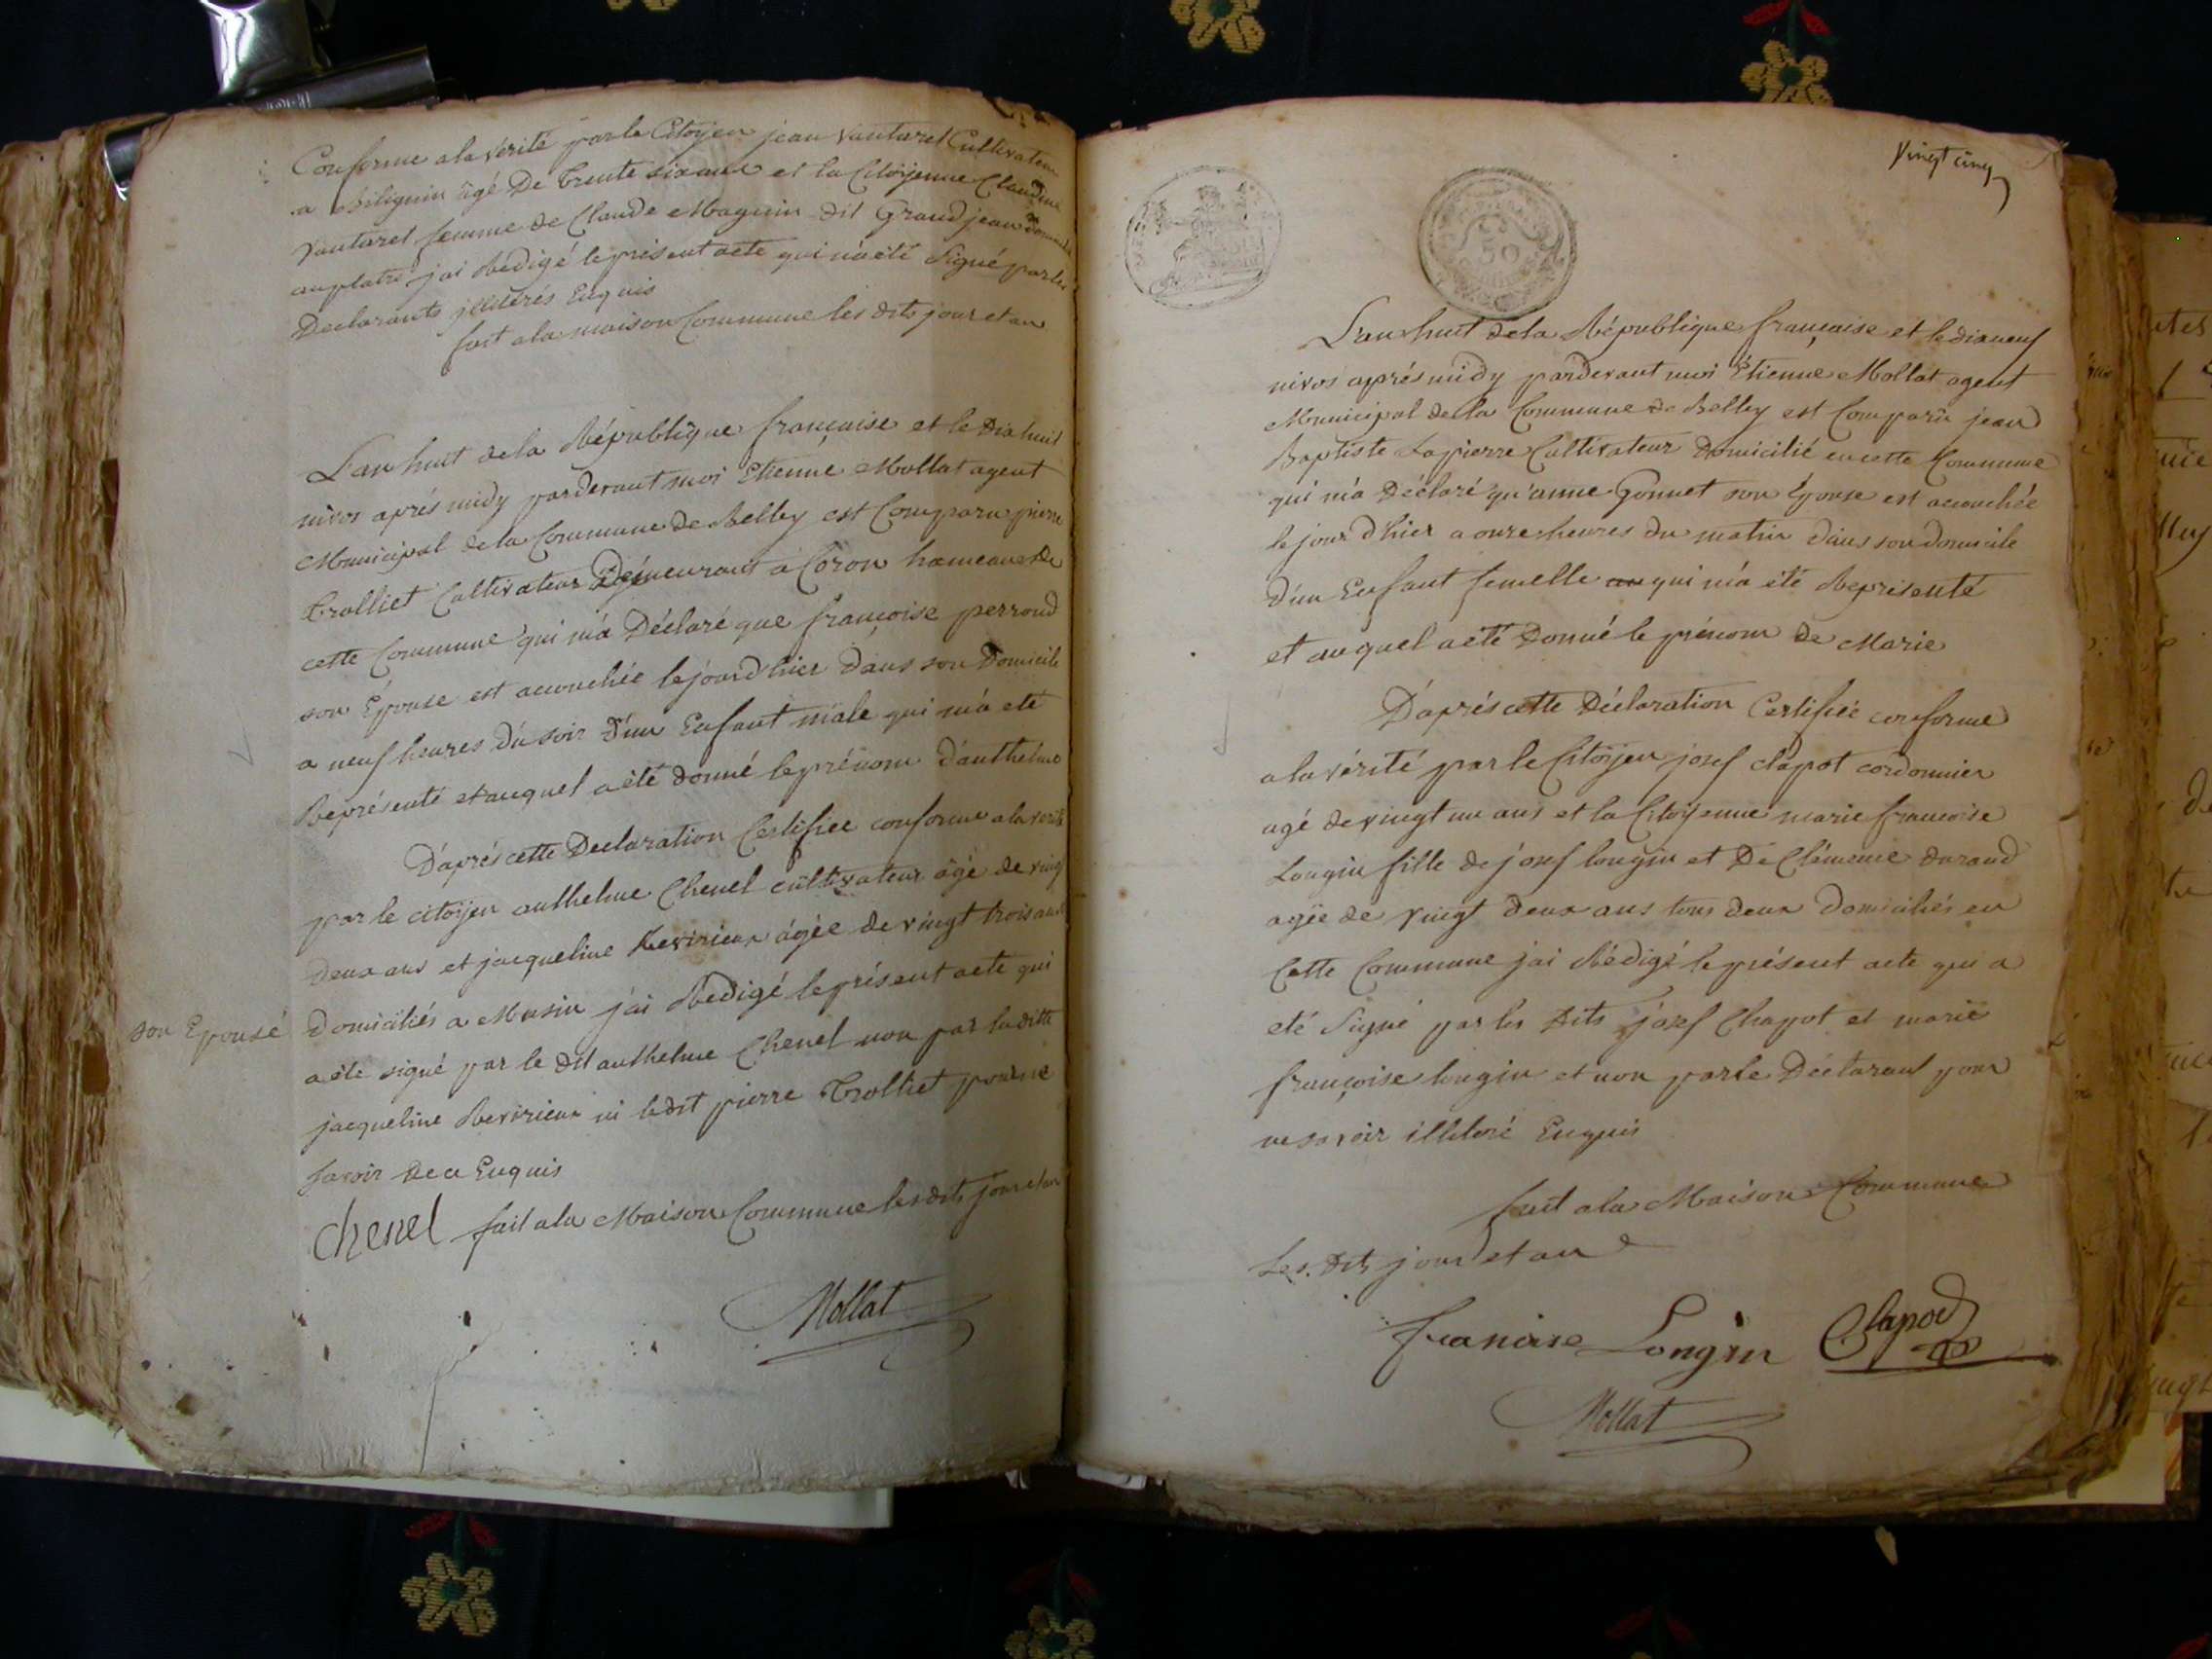 Conforme a la vérité par le Citoÿen jean Vauturet Cultivateur
a Biliguin âgé De Trente six ans et la Citoÿenne Claudine
Vauturet femme de Claude Maguin dit Grandjean
au platre j'ai Redigé le présent acte qui n'a été Signé par les
Declarants illiterés Enquis
fait a la maison Commune les dits jour et an
L'an huit de la République française et le Dix huit
nivos aprés midy pardevant moi Etienne Mollat agent
Municipal de la Commune de Belley est Comparu pierre
Trolliet Cultivateur Démeurant à Coron hameau de
cette Commune qui m'a Déclaré que françoise perroud
son Épouse est accouchée le jour d'hier dans son Domicile
a neuf heures du soir d'un Enfant mâle qui m'a eté
Représenté et auquel a été donné le prénom d'anthelme
D'aprés cette Declaration Certifiée conforme a la verité
par le citoÿen anthelme Chenel cultivateur âgé de vingt
deux ans et jacqueline Revirieux âgée de vingt trois ans
son Epouse
domiciliés a Musin j'ai Redigé le présent acte qui
a été signé par le dit anthelme Chenel non par la ditte
jacqueline Revirieux ni le dit pierre Trolliet pour ne
savoir de ce Enquis
Chenel fait a la Maison Commune les dits jour et an
Mollat
Vingt cinq
50
L'an huit de la République française et le dix neuf
nivos aprés midy pardevant moi Étienne Mollat agent
Municipal de la Commune de Belley est Comparu jean
Baptiste Lapierre Cultivateur Domicilié en cette Commune
qui m'a Déclaré qu'anne Gonnet son Épouse est accouchée
le jour d'hier a onze heures du matin dans son domicile
d'un Enfant femelle qui m'a été Représenté
et auquel a été Donné le prénom de Marie
D'aprés cette Déclaration Certifiée conforme
a la vérité par le Citoÿen josef clapot cordonnier
agé de vingt un ans et la Citoyenne marie francoise
Longin fille de josef longin et De Clémence durand
agée de vingt deux ans tous deux Domiciliés en
Cette Commune j'ai Rédigé le présent acte qui a
eté Signé par les Dits josef Chapot et marie
françoise longin et non par le Déclarant pour
ne savoir illiteré Enquis
fait a la Maison Commune
Les Dits jour et an
francoise Longin Clapod
Mollat